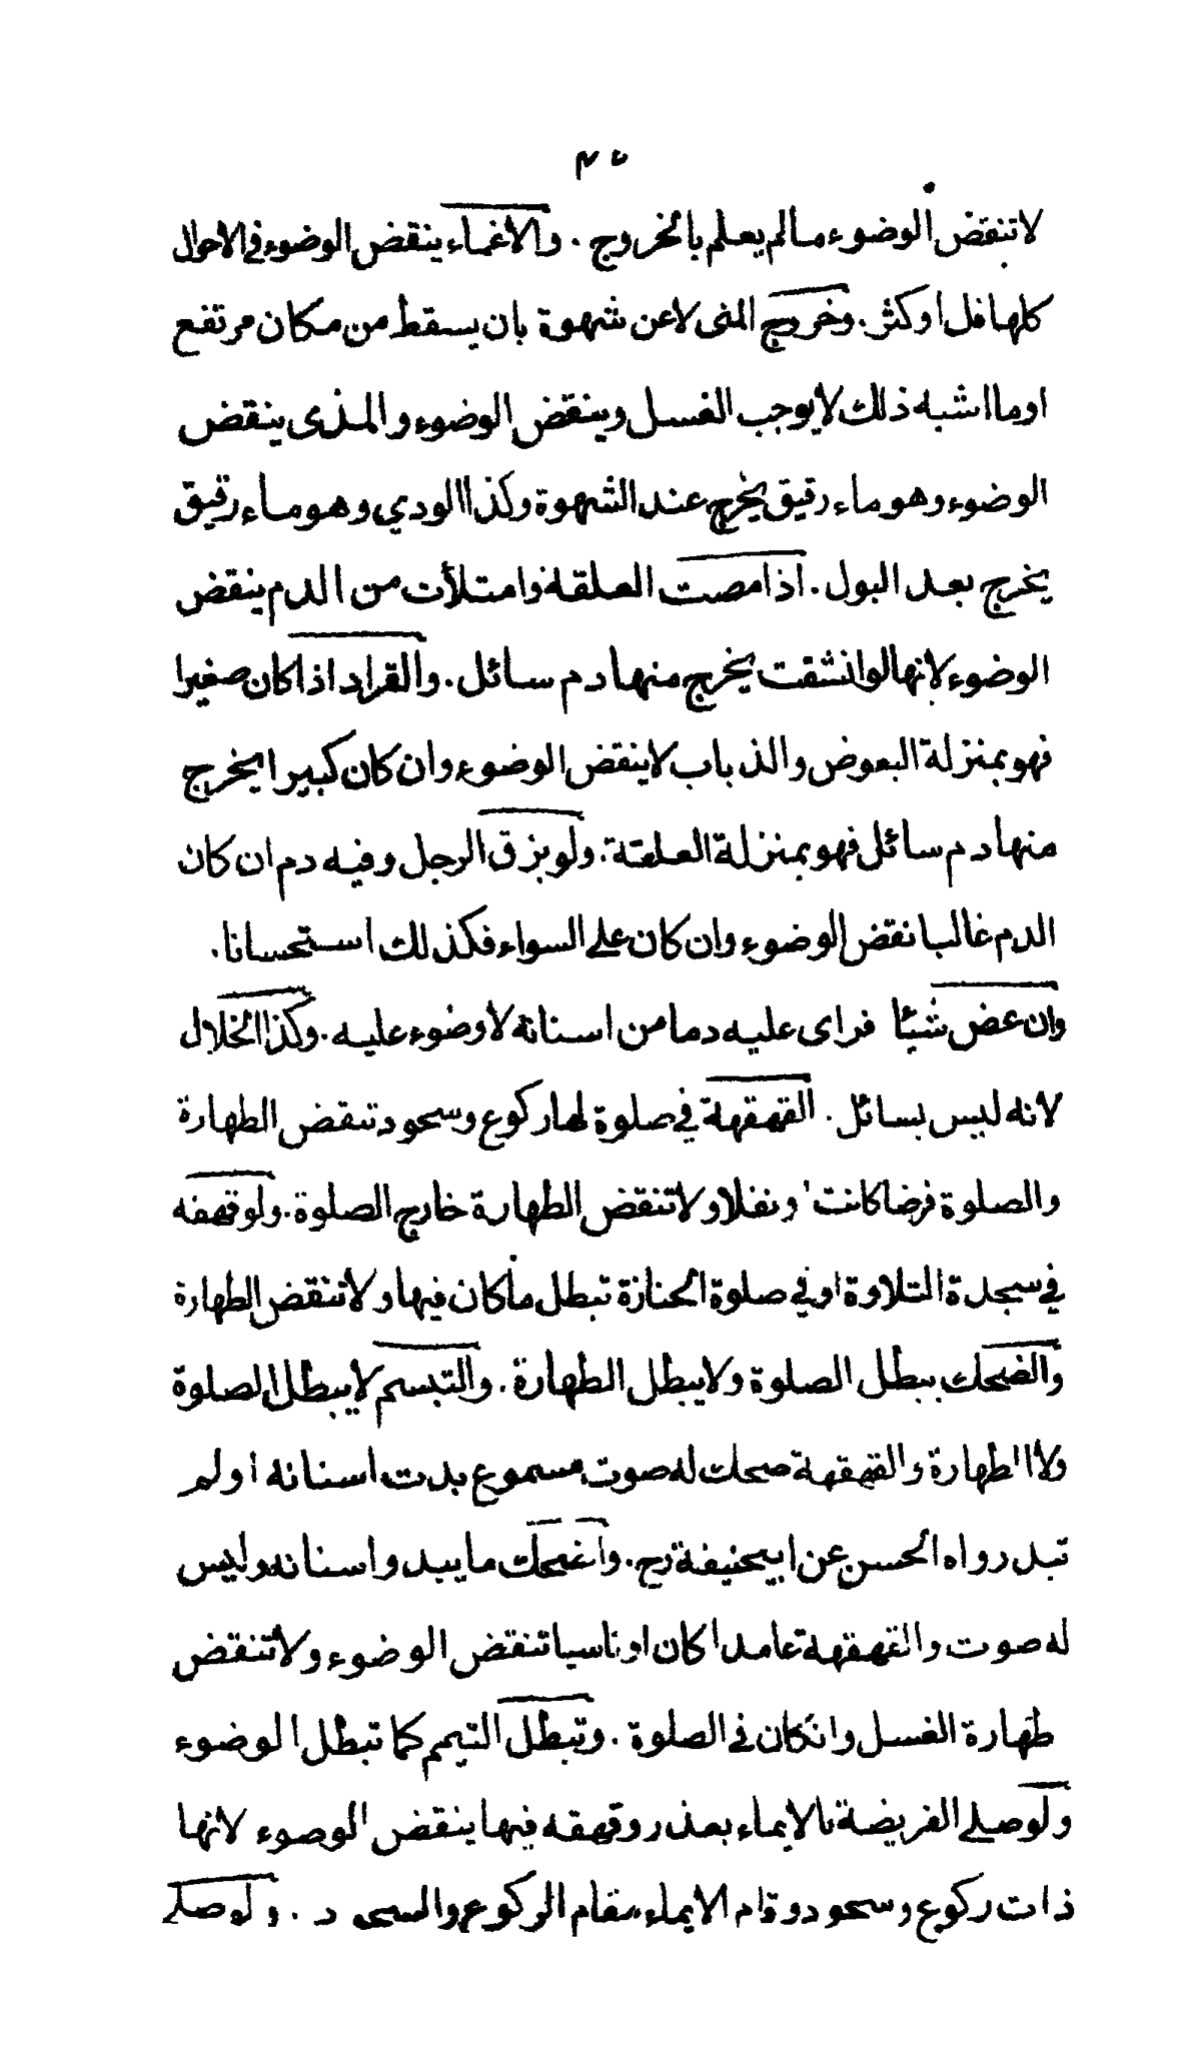 لا تنقض الوضوء مالم يعلم بالخروج . والاغماء ينقض الوضوء في الاحوال
كلها قل او كثر . وخروج المنى لا عن شهوة بان يسقط من مكان مرتفع
او ما اشبه ذلك لا يوجب الغسل وينقض الوضوء والمذى ينقض
الوضوء وهو ماء رقيق يخرج عند الشهوة وكذا الودي وهو ماء رقيق
يخرج بعد البول . اذا مصت العلقة وامتلأت من الدم ينقض
الوضوء لانها لو انشقت يخرج منها دم سائل . والقراد اذا كان صغيرا
فهو بمنزلة البعوض والذباب لا ينقض الوضوء وان كان كبيرا يخرج
منها دم سائل فهو بمنزلة العلقة . ولو بزق الرجل وفيه دم ان كان
الدم غالبا نقض الوضوء وان كان على السواء فكذلك استحسانا .
وان عض شيئا فراى عليه دما من اسنانه لا وضوء عليه . وكذا الخلال
لانه ليس بسائل . القهقهة في صلوة لها ركوع وسجود تنقض الطهارة
والصلوة فرضا كانت او نفلا ولا تنقض الطهارة خارج الصلوة . ولو قهقه
في سجدة التلاوة او في صلوة الجنازة تبطل ما كان فيها ولا تنقض الطهارة
والضحك يبطل الصلوة ولا يبطل الطهارة . والتبسم لا يبطل الصلوة
ولا الطهارة والقهقهة ضحك له صوت مسموع بدت اسنانه او لم
تبد رواه الحسن عن ابيحنيفة رح . والضحك ما يبدو اسنانه وليس
له صوت والقهقهة عامدا كان او ناسيا تنقض الوضوء ولا تنقض
طهارة الغسل وانكان في الصلوة . وتبطل التيمم كما تبطل الوضوء
ولو صلى الفريضة بالايماء بعذر وقهقه فيها ينقض الوضوء لانها
ذات ركوع وسجود وقام الايماء مقام الركوع والسجود . ولو صلى